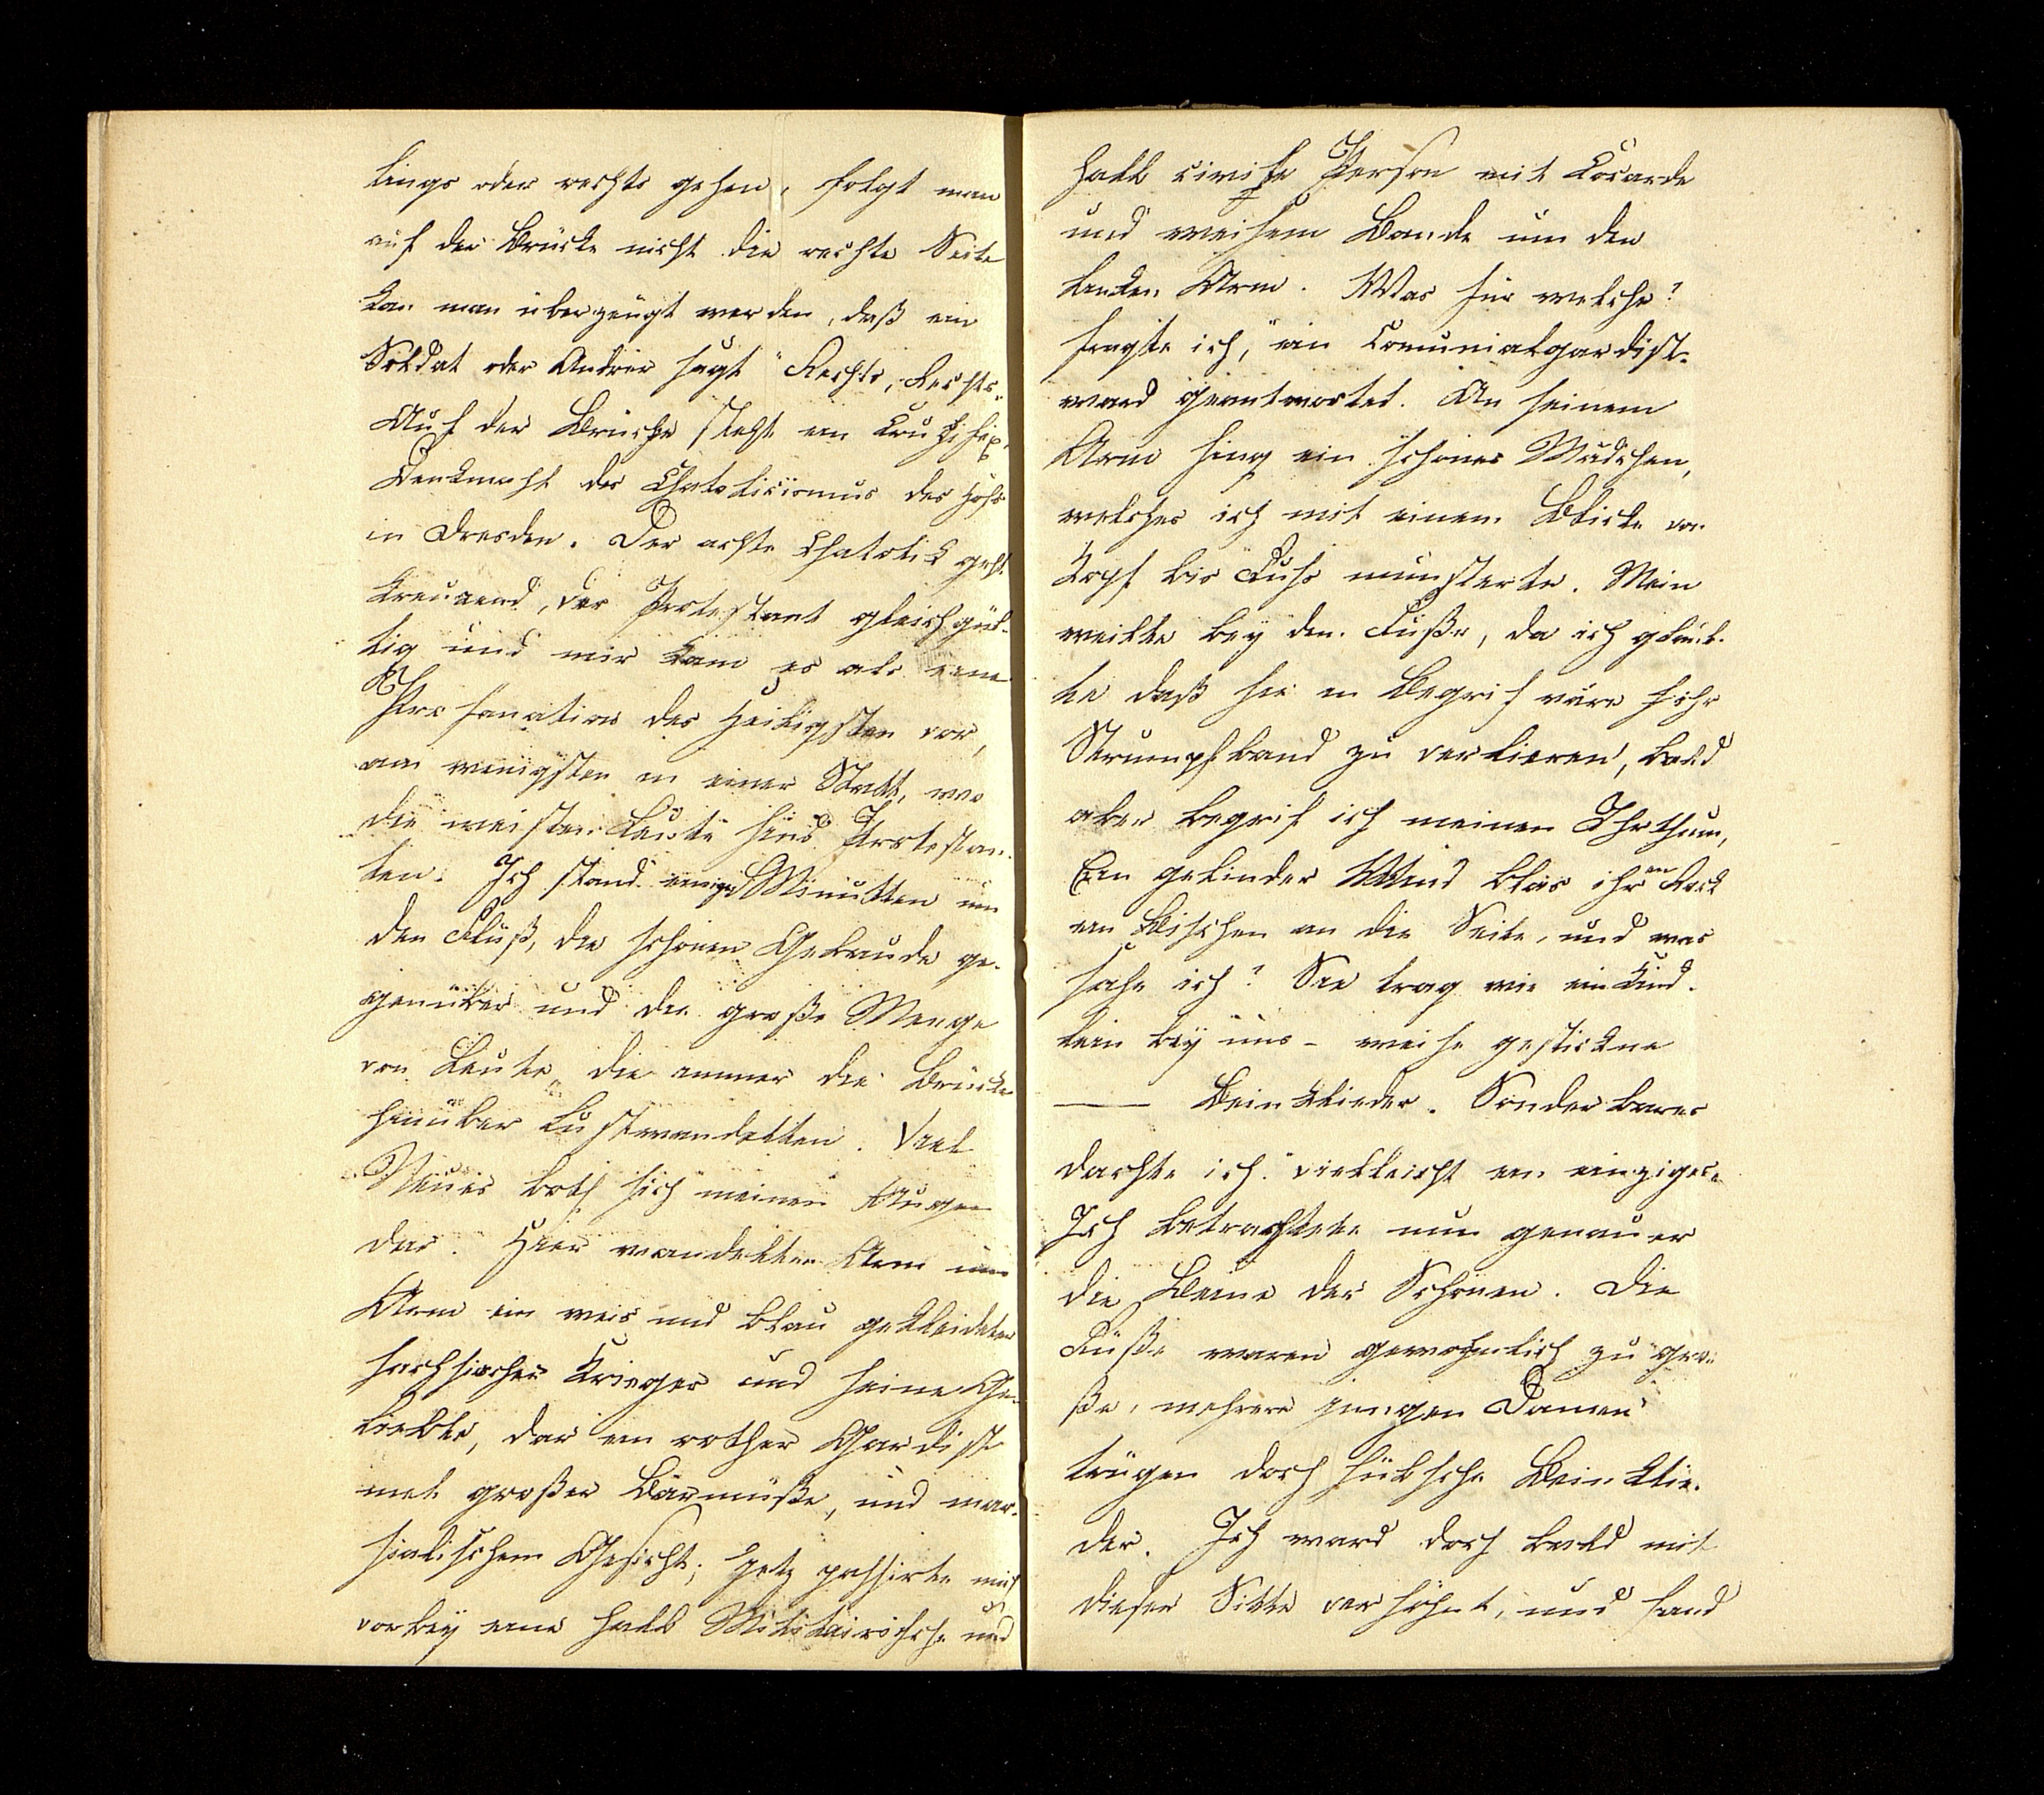 lings oder rechts gehen, folgt man
auf der Brücke nicht die rechte Seite
kan man überzeugt werden, daß ein
Soldat oder Andrer sagt "Rechts, Rechts"
Auf der Brücke steht ein Cruzifix,
Denkmahl des Chatolicismus des Hofs
in Dresden. Der ächte Chatolick geht
kreuzend, der Protestant gleichgül-
tig und mir kam es als eine
Profanation des Heiligsten vor,
am wenigsten in einer Stadt, wo
die meisten Leute sind Protestan-
ten. Ich stand einige Minutten um
den Fluß, die schönen Gebaude ge-
genüber und die große Menge
von Leute, die immer die Brücke
hinüber lustwandelten. Viel
Neues both sich meinen Augen
dar. Hier wandelten Arm um
Arm ein weis und blau gekleideter
sachsischer Krieger und seine Ge-
liebte, dar ein rother Gardist
met großer Bärmüße, und mar-
sialischem Gesicht; Jetz passirte mich
vorbey eine halb Militairische und
halb civile Person mit Cocarde
und weisem Bande um den
linken Arm. Was für welche?
fragte ich, "ein Comunialgardist"
ward geantwortet. An seinem
Arm hing ein schönes Mädchen,
welches ich mit einem Blicke von
Kopf bis Fuhs munsterte. Mein
weilte bey den Fuße, da ich glaub-
te daß sie in Begrif wäre ihr
Strumpfband zu verlieren, bald
aber begrif ich meinen Ihrthum,
Ein gelinder Wind blas ihren Rock
ein Bischen an die Seite, und was
sahe ich? Sie trag wie ein Kind-
lein bey uns - weise gestickne
—— Beinklieder. Sonderbares
dachte ich "vielleicht ein einziges"
Ich betrachtete nun genauer
die Beine der Schönen. Die
Füße waren gewohnlich zu gro-
ße, mehrere jungen Damen
trugen doch hübsche Beinklie-
der. Ich ward doch bald mit
dieser Sitte versöhnt, und fand